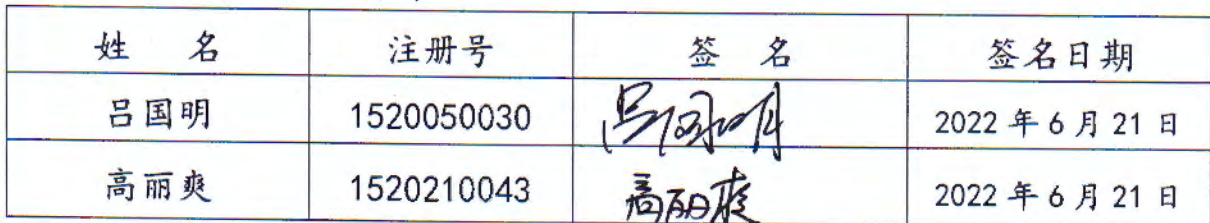 姓 名 注册号 签 名 签名日期
吕国明 1520050030 吕国明 2022 年 6 月 21 日
高丽爽 1520210043 高丽爽 2022 年 6 月 21 日